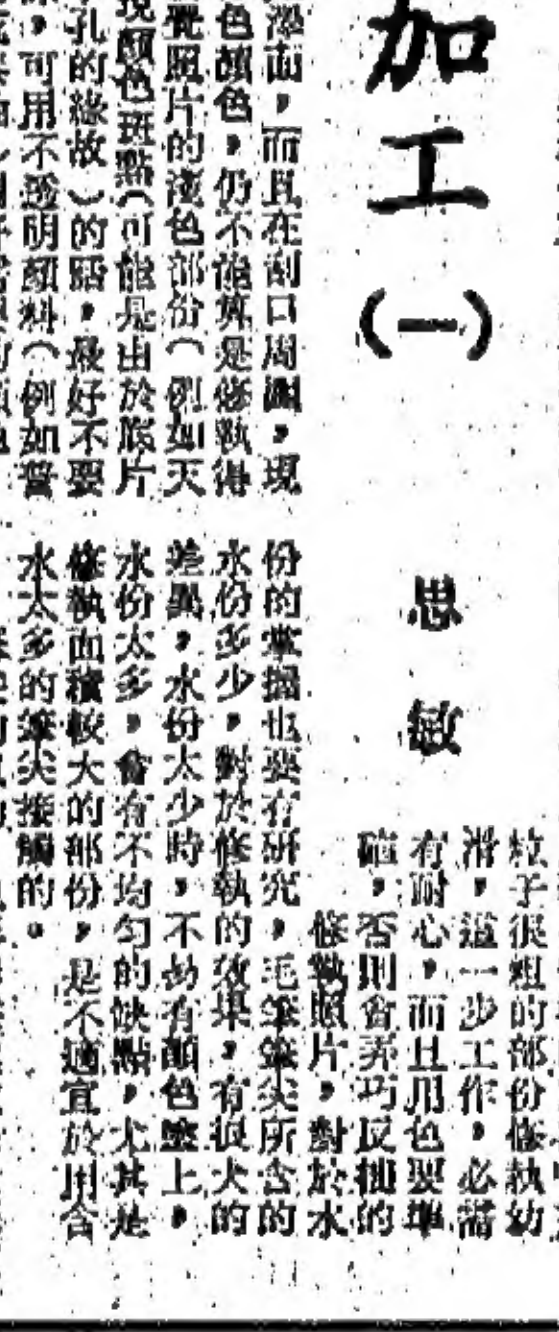 加工（一）
思敏
粒子很粗的部份修執幼
滑，這一步工作，必需
有耐心，而且用色要準
確，否則會弄巧反拙的
修執照片，對於水
份的掌握也要有研究，毛筆筆尖所含的
水份多少，對於修執的效果，有很大的
差異，水份太少時，不易有顏色塗上，
水份太多，會有不均勻的缺點，尤其是
修執面積較大的部份，是不適宜於用含
水太多的筆尖接觸的。
面，而且在刮口周圍，現
色顏色，仍不能算是修執得
覺照片的淺色部份（例如天
現顏色斑點（可能是由於底片
孔的緣故）的話，最好不要
，可用不透明顏料（例如普